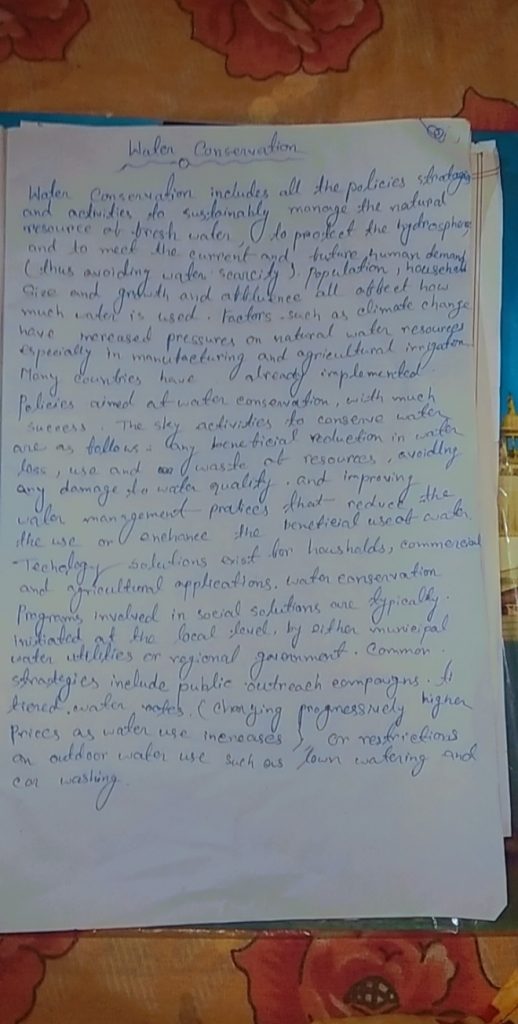 Water Conservation
Water Conservation includes all the policies strategies
and activities to sustainably manage the natural
resource of fresh water, to protect the hydrosphere
and to meet the current and future human demand
(thus avoiding water scarcity). population, household
size and growth and affluence all affect how
much water is used. Factors such as climate change
have increased pressures on natural water resources
especially in manufacturing and agricultural irrigation.
Many countries have already implemented
Policies aimed at water conservation, with much
success. The sky activities to conserve water
are as follows: any beneficial reduction in water
loss, use and waste of resources, avoiding
any damage to water quality. and improving
water management pratices that reduce the
the use or enehance the beneficial use of water.
Techology solutions exist for housholds, commercial
and agricultural applications. water conservation
Programs involved in social solutions are typically.
initiated at the local level, by either municipal
water utilities or regional government. Common
strategies include public outreach campaigns.
tiered water rates, (charging progressively higher
Prices as water use increases), or restrictions
on outdoor water use such as lown watering and
car washing.